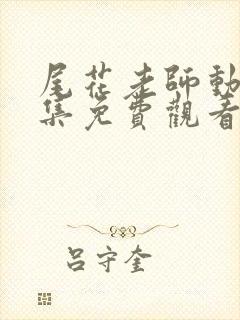 尾花老師動
集免費觀看
呂守奎